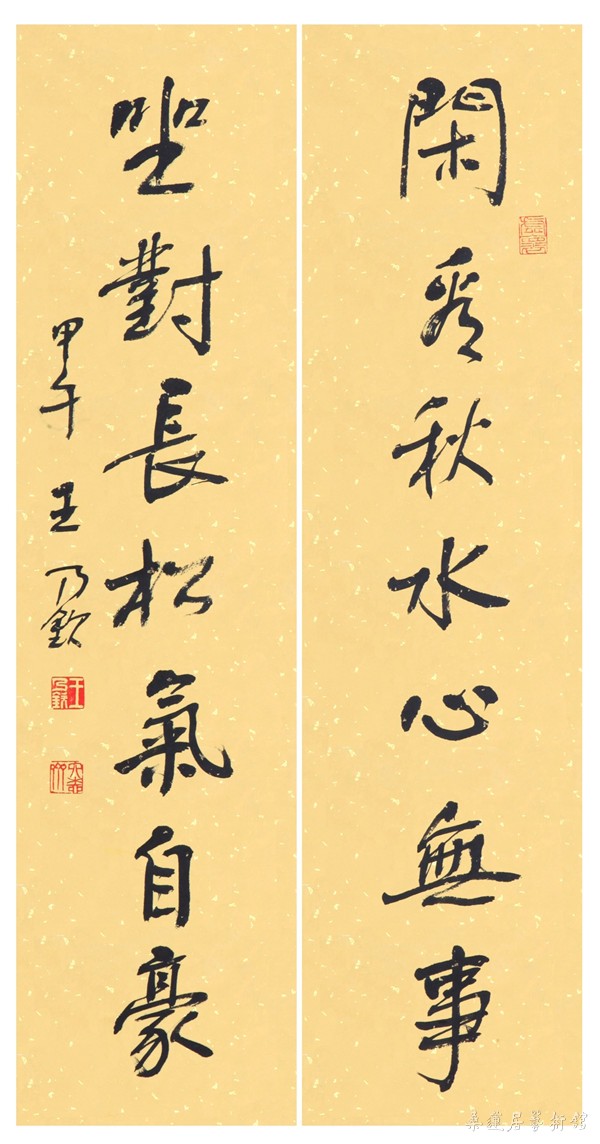 閑看秋水心無事
坐對長松氣自豪
甲午 王乃欽
王乃欽